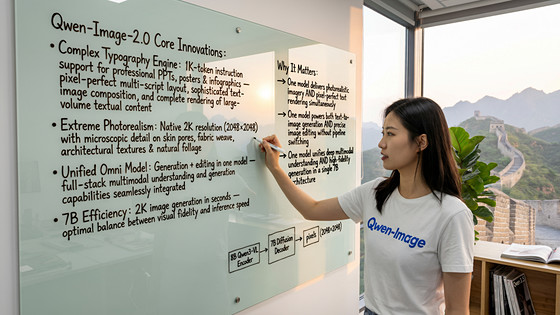 Qwen-Image-2.0 Core Innovations:
• Complex Typography Engine: 1K-token instruction
support for professional PPTs, posters & infographics —
pixel-perfect multi-script layout, sophisticated text-
image composition, and complete rendering of large-
volume textual content
• Extreme Photorealism: Native 2K resolution (2048×2048)
with microscopic detail on skin pores, fabric weave,
architectural textures & natural foliage
• Unified Omni Model: Generation + editing in one model —
full-stack multimodal understanding and generation
capabilities seamlessly integrated
• 7B Efficiency: 2K image generation in seconds —
optimal balance between visual fidelity and inference speed
Why It Matters:
→ One model delivers photorealistic
imagery AND pixel-perfect text
rendering simultaneously
→ One model powers both text-to-
image generation AND precise
image editing without pipeline
switching
→ One model unifies deep multimodal
understanding AND high-fidelity
generation in a single 7B
8B Qwen3-VL
Encoder
→
7B Diffusion
Decoder
→
pixels
(2048×2048)
Qwen-Image